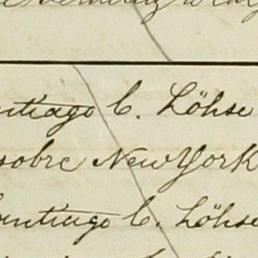 ntiago C. Löhse
sobre New York
antiago C. Löhse